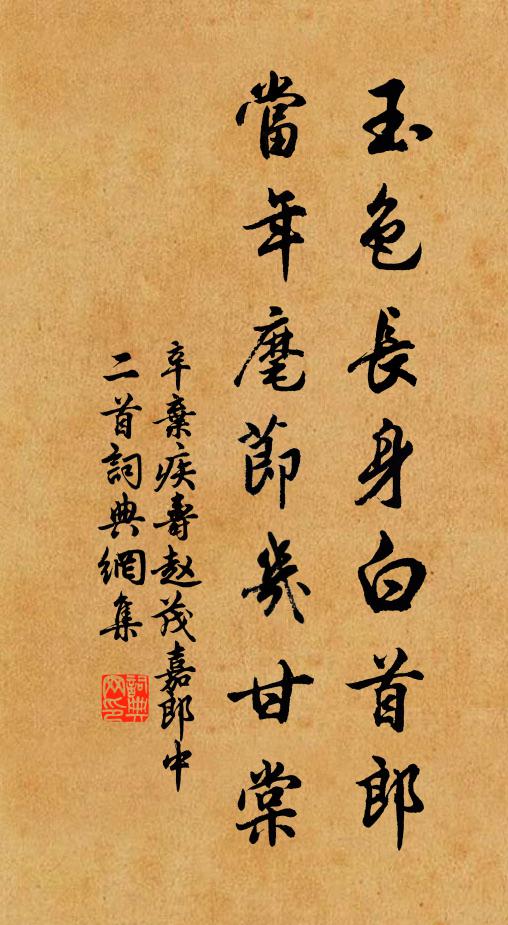 玉色長身白首郎
當年麾節幾甘棠
辛棄疾壽赵茂嘉郎中
二首詞典網集
詞典網印